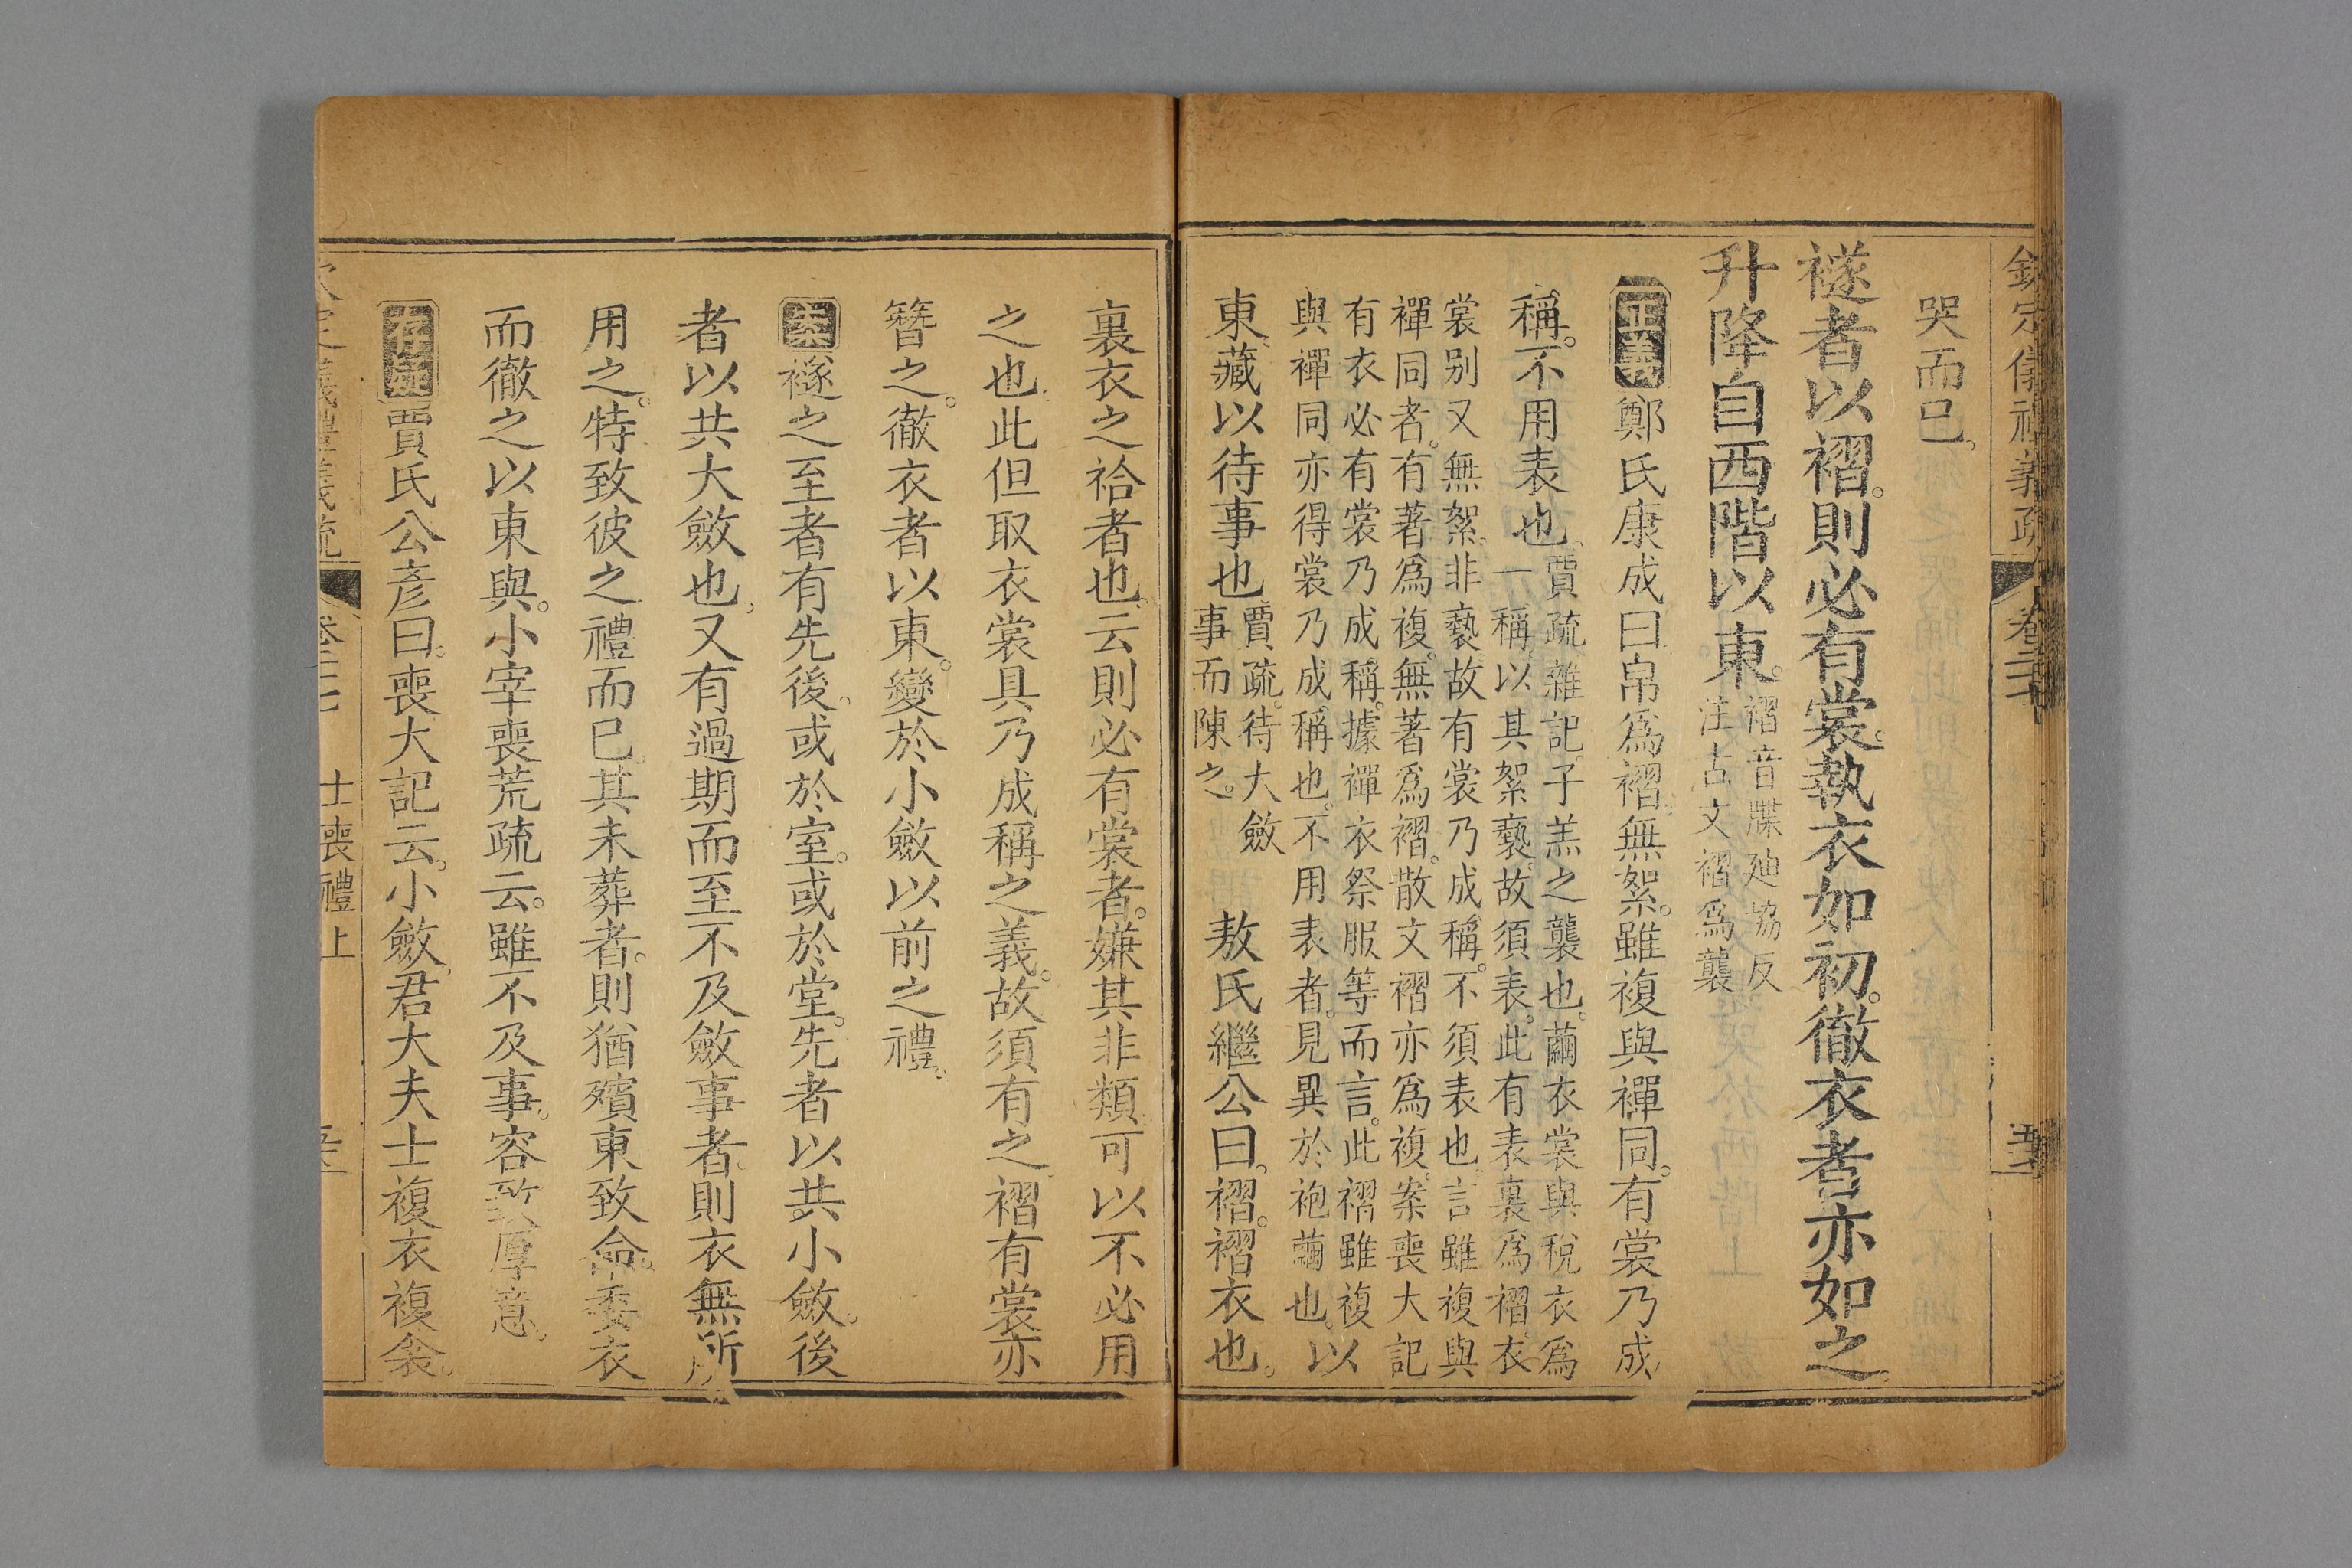 欽定儀禮義疏 卷二十七
哭而已。
襚者以褶。則必有裳。執衣如初。徹衣者亦如之。
升降自西階以東。褶音牒廸協反
注古文褶爲襲
正義鄭氏康成曰帛爲褶。無絮。雖複與襌同。有裳乃成
稱。不用表也。賈疏雜記。子羔之襲也。繭衣裳與稅衣爲
一稱。以其絮褻。故須表。此有表裏爲褶。衣
裳别又無絮。非褻。故有裳乃成稱。不須表也。言雖複與
襌同者。有著爲複。無著爲褶。散文褶亦爲複。案喪大記
有衣必有裳乃成稱。據襌衣祭服等而言。此褶雖複
與襌同亦得裳乃成稱也。不用表者。見異於袍繭也。以
東。藏以待事也賈疏。待大斂
事而陳之。敖氏繼公曰。褶。褶衣也。
裏衣之袷者也。云則必有裳者。嫌其非類。可以不必用
之也。此但取衣裳具乃成稱之義。故須有之。褶有裳亦
簪之。徹衣者以東。變於小斂以前之禮。
案襚之至者有先後。或於室。或於堂。先者以共小斂。後
者以共大斂也。又有過期而至不及斂事者。則衣無所
用之。特致彼之禮而已。其未葬者。則猶殯東致命。委衣
而徹之以東與。小宰喪荒疏云。雖不及事。容致厚意。
存疑賈氏公彥曰。喪大記云。小斂。君大夫士複衣複衾。
欽定儀禮義疏 卷二十七 士喪禮上